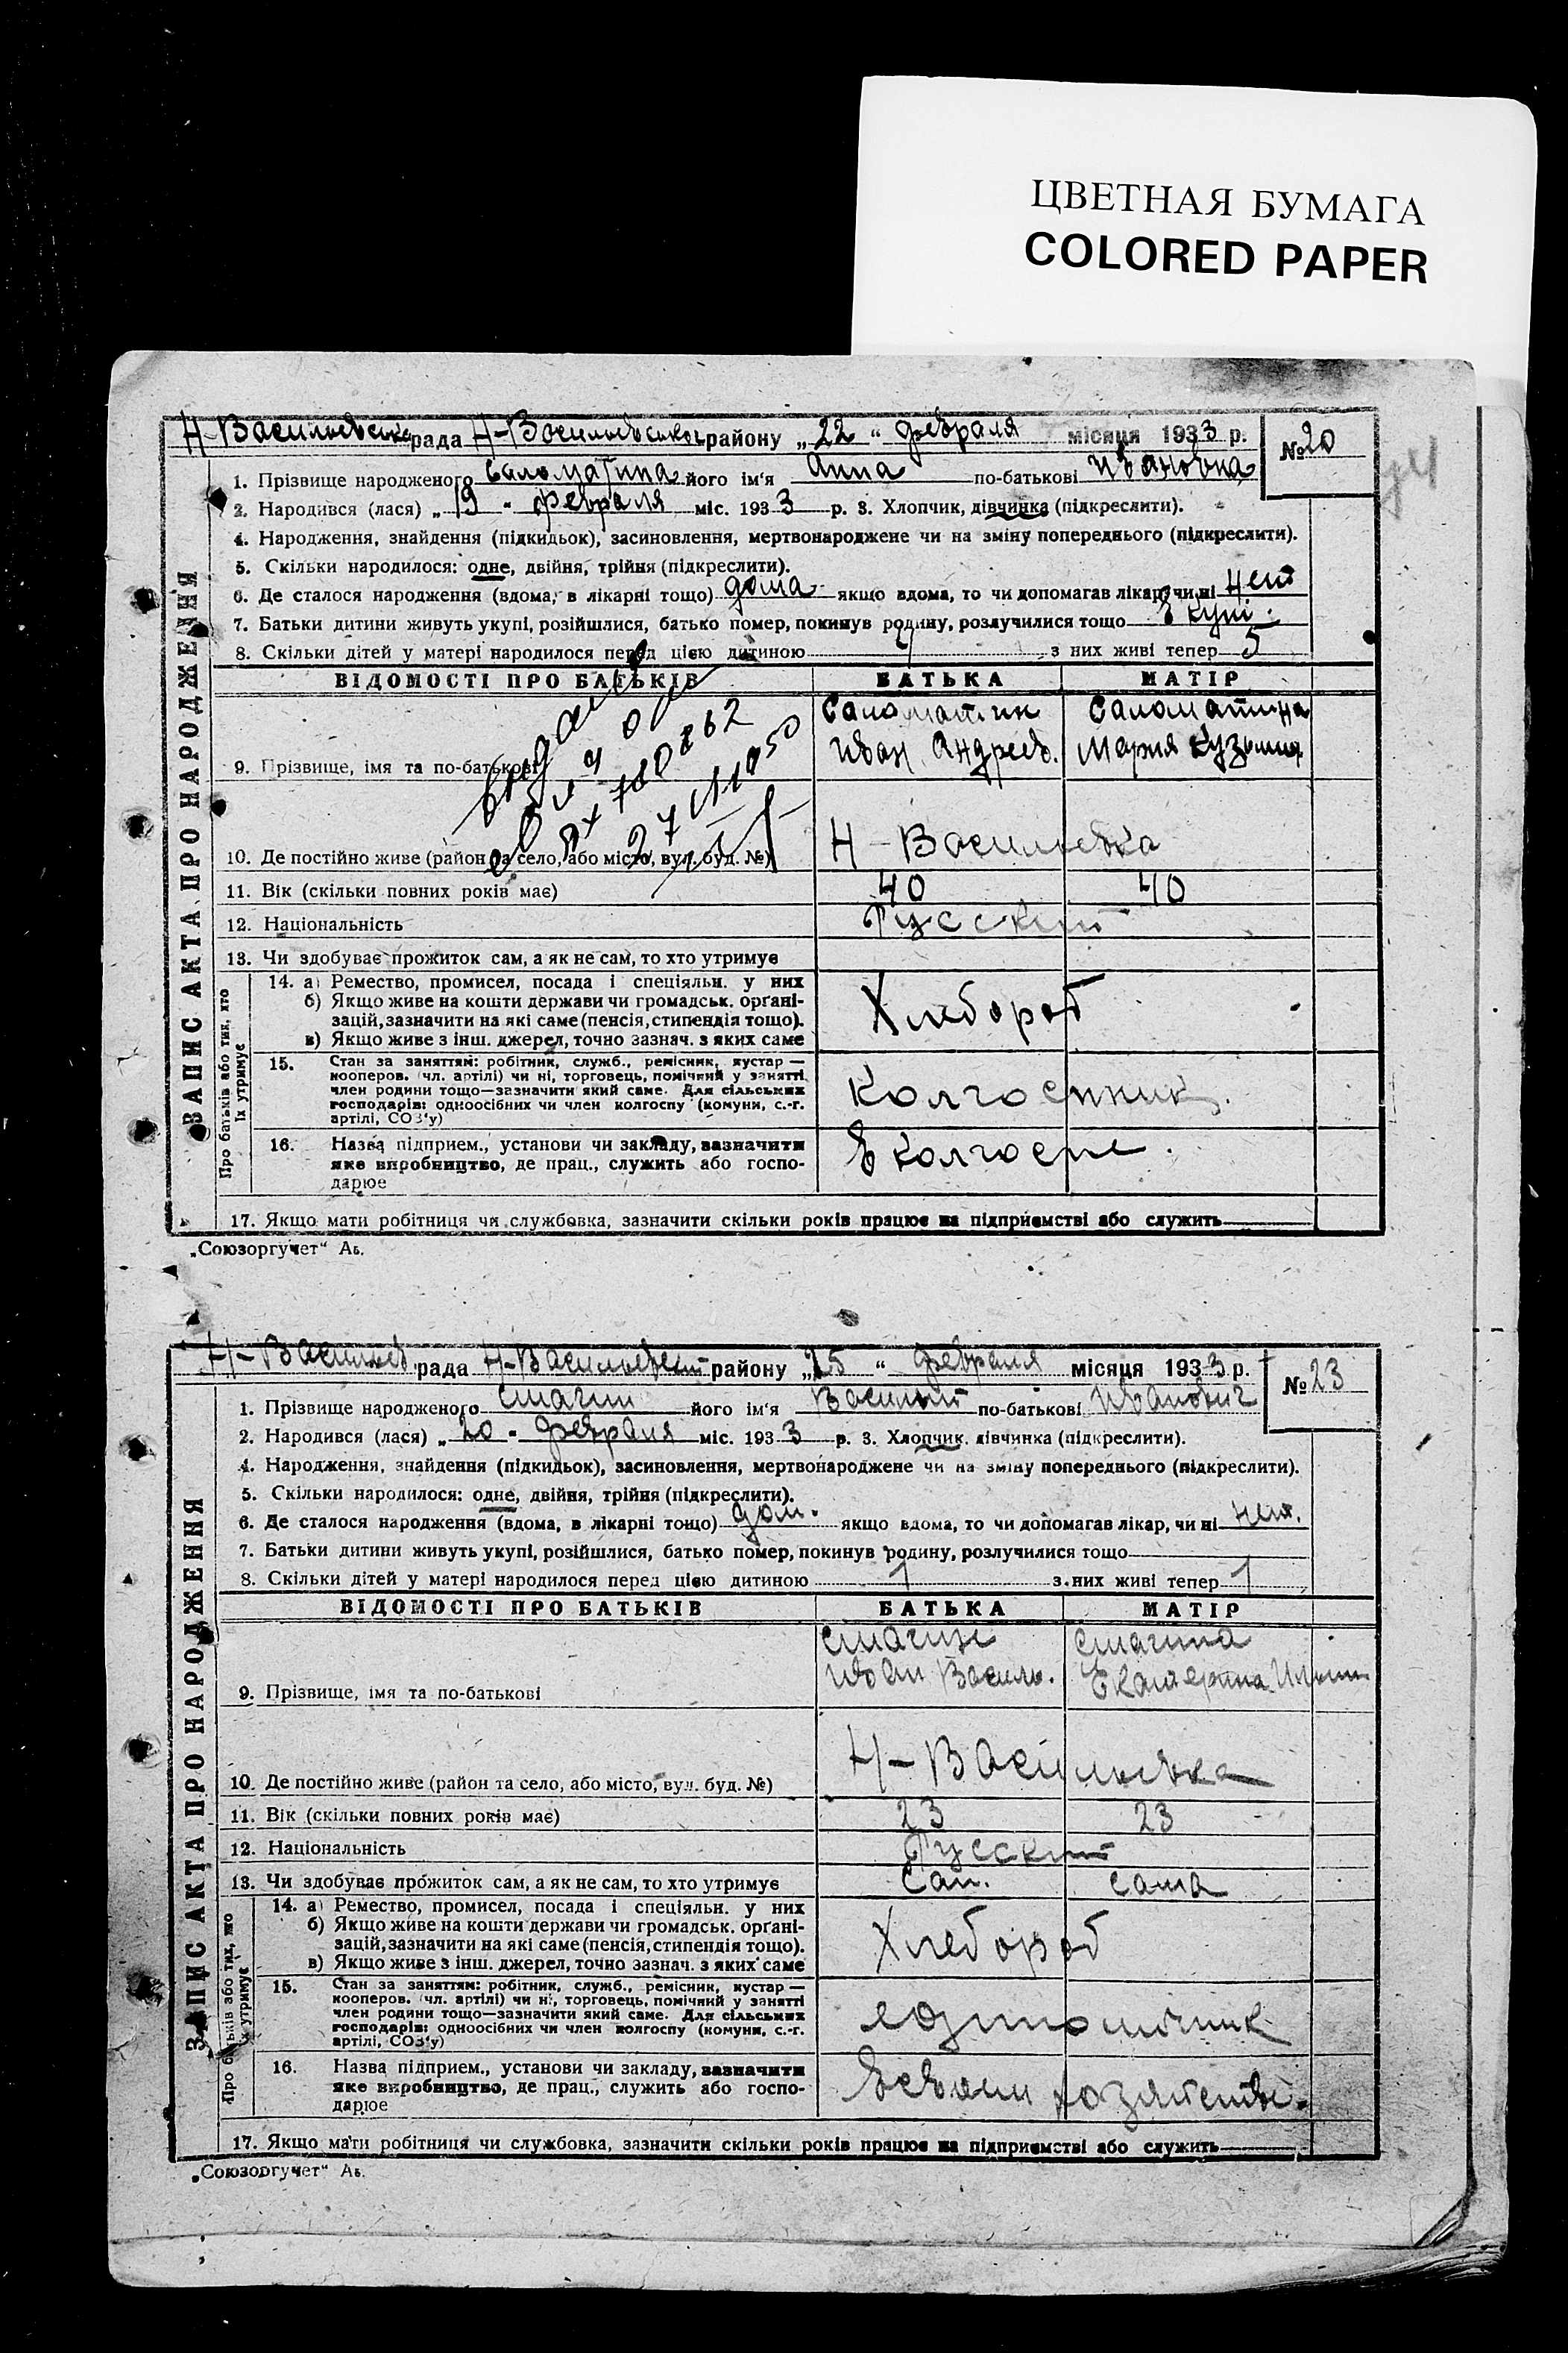 ЦВЕТНАЯ БУМАГА
COLORED PAPER
Н-Васильевска рада Н-Васильевського району „22“ февраля місяця 1933 р. №20
1. Прізвище народженого Саломатина його ім'я Анна по-батькові Ивановна
2. Народився (лася) „19" февраля міс. 1933 р. 3. Хлопчик, дівчинка (підкреслити).
4. Народження, знайдення (підкидьок), засиновлення, мертвонароджене чи на зміну попереднього (підкреслити).
5. Скільки народилося: одне, двійня, трійня (підкреслити).
6. Де сталося народження (вдома, в лікарні тощо) дома якщо вдома, то чи допомагав лікар, чи ні нет
7. Батьки дитини живуть укупі, розійшлися, батько помер, покинув родину, розлучилися тощо вкупі.
8. Скільки дітей у матері народилося перед цією дитиною з них живі тепер 5
ВІДОМОСТІ ПРО БАТЬКІВ БАТЬКА МАТІР
Саломатин Саломатина
Иван Андреев. Мария Кузьмин
9. Прізвище, імя та по-батькові
27
Н-Васильевка
10. Де постійно живе (район та село, або місто, вул. буд. №)
11. Вік (скільки повних років має) 40 40
12. Національність Русский
13. Чи здобуває прожиток сам, а як не сам, то хто утримує
14. а) Ремество, промисел, посада і спеціяльн. у них
б) Якщо живе на кошти держави чи громадськ. органі-
зацій, зазначити на які саме (пенсія, стипендія тощо).
в) Якщо живе з інш. джерел, точно зазнач. з яких саме
Хлебороб
15. Стан за заняттям: робітник, служб., ремісник, кустар —
кооперов. (чл. артілі) чи ні, торговець, помічний у занятті
член родини тощо—зазначити який саме. Для сільських
господарів: одноосібних чи член колгоспу (комуни, с.-г.
артілі, СОЗ'у)
Колгоспник.
16. Назва підприєм., установи чи закладу, зазначити
яке виробництво, де прац., служить або госпо-
дарює
В колгоспе.
17. Якщо мати робітниця чи службовка, зазначити скільки років працює на підприємстві або служить
ЗАПИС АКТА ПРО НАРОДЖЕННЯ
Про батьків або тих, хто
їх утримує
„Союзоргучет“ Аь.
Н-Васильев. рада Н-Васильевськ району „25“ февраля місяця 1933 р. №23
1. Прізвище народженого Смагин його ім'я Василий по-батькові Иванович
2. Народився (лася) „20" февраля міс. 1933 р. 3. Хлопчик, дівчинка (підкреслити).
4. Народження, знайдення (підкидьок), засиновлення, мертвонароджене чи на зміну попереднього (підкреслити).
5. Скільки народилося: одне, двійня, трійня (підкреслити).
6. Де сталося народження (вдома, в лікарні тощо) дом. якщо вдома, то чи допомагав лікар, чи ні нет.
7. Батьки дитини живуть укупі, розійшлися, батько помер, покинув родину, розлучилися тощо
8. Скільки дітей у матері народилося перед цією дитиною 1 з них живі тепер 1
ВІДОМОСТІ ПРО БАТЬКІВ БАТЬКА МАТІР
Смагин Смагина
Иван Василь. Екатерина Ильин
9. Прізвище, імя та по-батькові
Н-Васильевка
10. Де постійно живе (район та село, або місто, вул. буд. №)
11. Вік (скільки повних років має) 23 23
12. Національність Русский
13. Чи здобуває прожиток сам, а як не сам, то хто утримує Сам. сама
14. а) Ремество, промисел, посада і спеціяльн. у них
б) Якщо живе на кошти держави чи громадськ. органі-
зацій, зазначити на які саме (пенсія, стипендія тощо).
в) Якщо живе з інш. джерел, точно зазнач. з яких саме
Хлебороб
15. Стан за заняттям: робітник, служб., ремісник, кустар —
кооперов. (чл. артілі) чи ні, торговець, помічний у занятті
член родини тощо—зазначити який саме. Для сільських
господарів: одноосібних чи член колгоспу (комуни, с.-г.
артілі, СОЗ'у)
единоличник
16. Назва підприєм., установи чи закладу, зазначити
яке виробництво, де прац., служить або госпо-
дарює
17. Якщо мати робітниця чи службовка, зазначити скільки років працює на підприємстві або служить
ЗАПИС АКТА ПРО НАРОДЖЕННЯ
Про батьків або тих, хто
їх утримує
„Союзоргучет“ Аь.